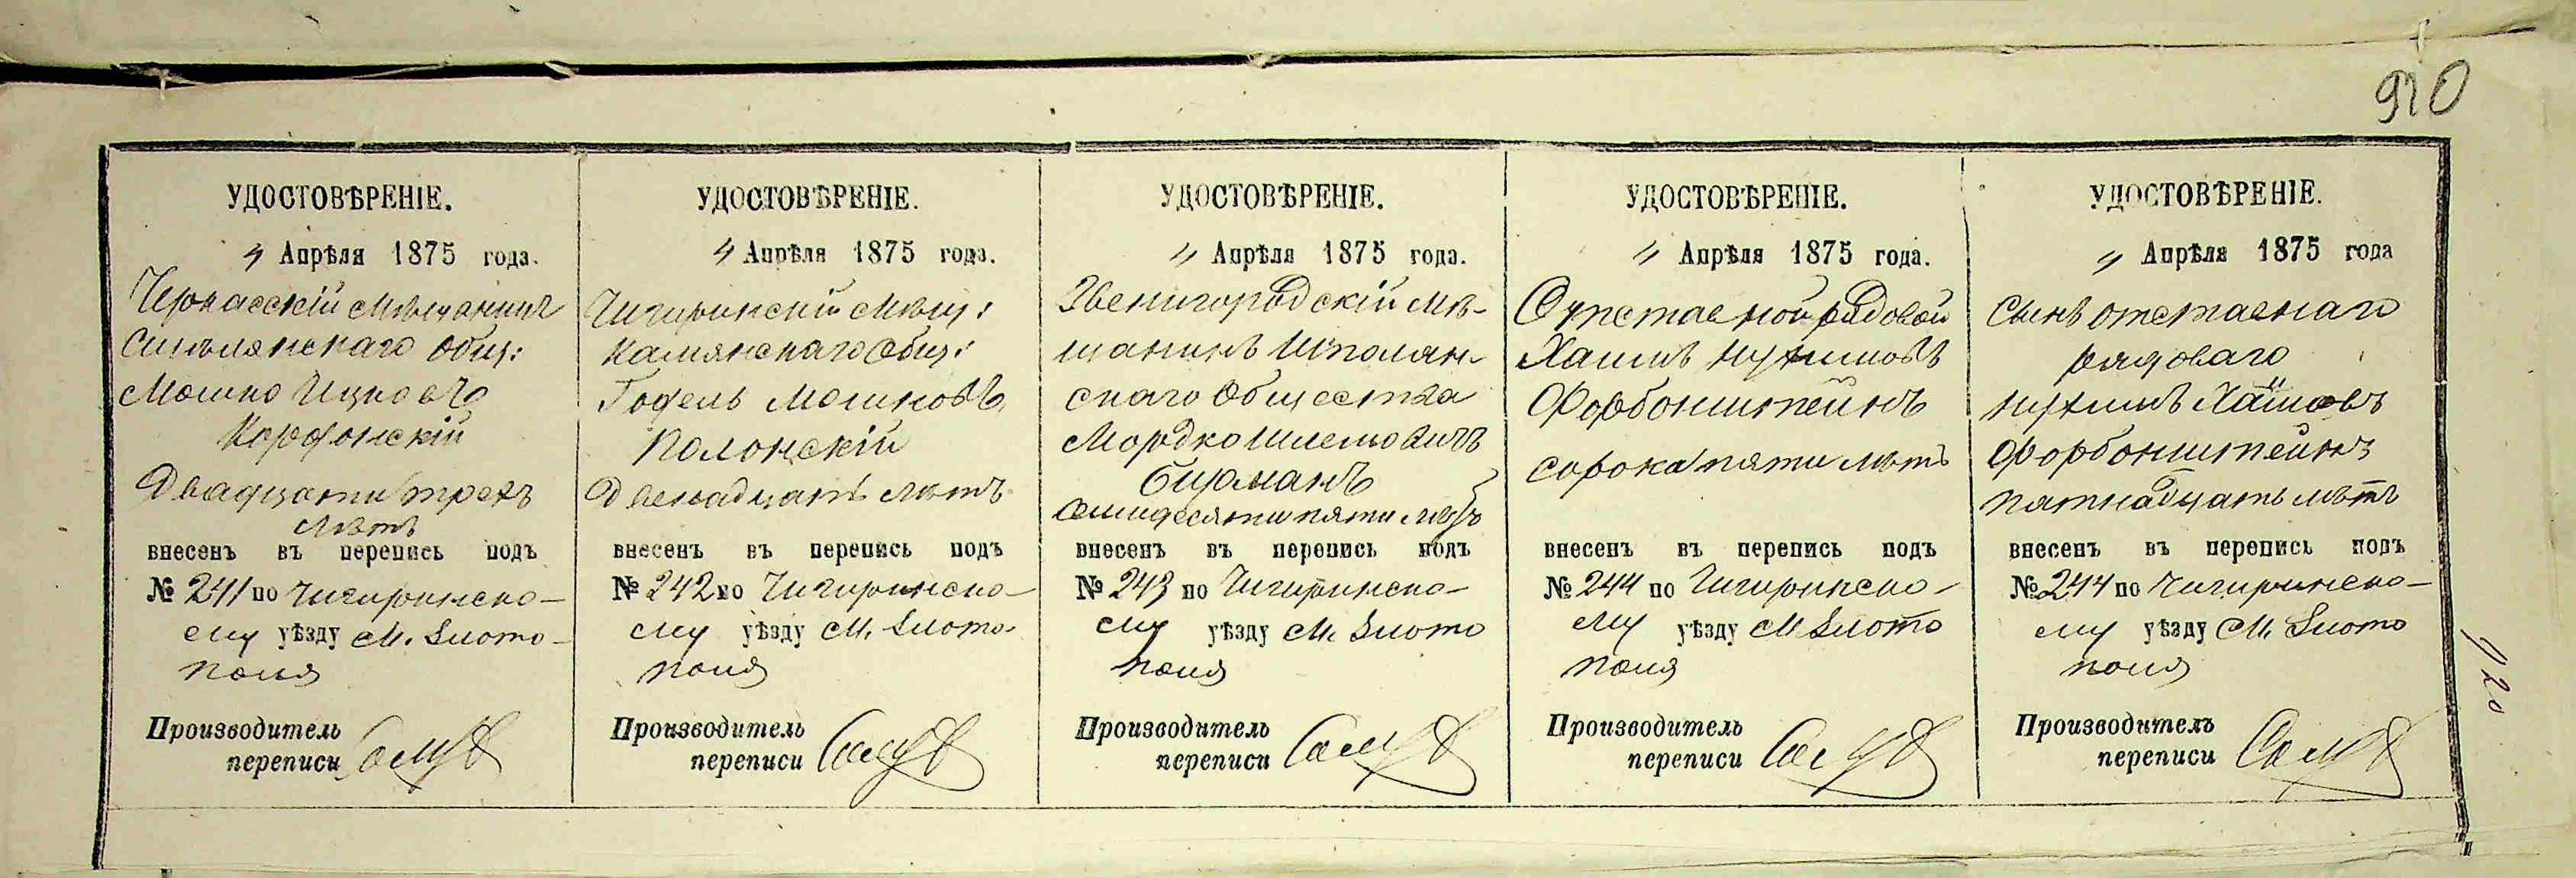 920
УДОСТОВѢРЕНІЕ.
4 Апрѣля 1875 года.
Черкасскій Мѣщанинъ
Смѣлянскаго Общ:
Мошко Ицковъ
Корсонскій
Двадцати трехъ
лѣтъ
внесенъ въ перепись подъ
№ 241 по Чигиринско-
му уѣзду М. Злато-
поля
Производитель
переписи
УДОСТОВѢРЕНІЕ.
4 Апрѣля 1875 года.
Чигиринскій Мѣщ:
Камянскаго Общ:
Гофель Мошковъ
Полонскій
Двенадцать лѣтъ
внесенъ въ перепись подъ
№ 242 по Чигиринско-
му уѣзду М. Злато-
поля
Производитель
переписи
УДОСТОВѢРЕНІЕ.
4 Апрѣля 1875 года.
Звенигородскій Мѣ-
щанинъ Шполян-
скаго Общества
Мордко Шлемовичъ
Бирманъ
семидесяти пяти лѣтъ
внесенъ въ перепись подъ
№ 243 по Чигиринско-
му уѣзду М. Злато
поля
Производитель
переписи
УДОСТОВѢРЕНІЕ.
4 Апрѣля 1875 года.
Отставной рядовой
Хаимъ Нухимовъ
Форбонштейнъ
сорока пяти лѣтъ
внесенъ въ перепись подъ
№ 244 по Чигиринско-
му уѣзду М Злато
поля
Производитель
переписи
УДОСТОВѢРЕНІЕ.
4 Апрѣля 1875 года
Сынъ отставнаго
рядоваго
Нухимъ Хаимовъ
Форбонштейнъ
пятнадцать лѣтъ
внесенъ въ перепись подъ
№ 244 по Чигиринско-
му уѣзду М. Злато
поля
Производитель
переписи
920